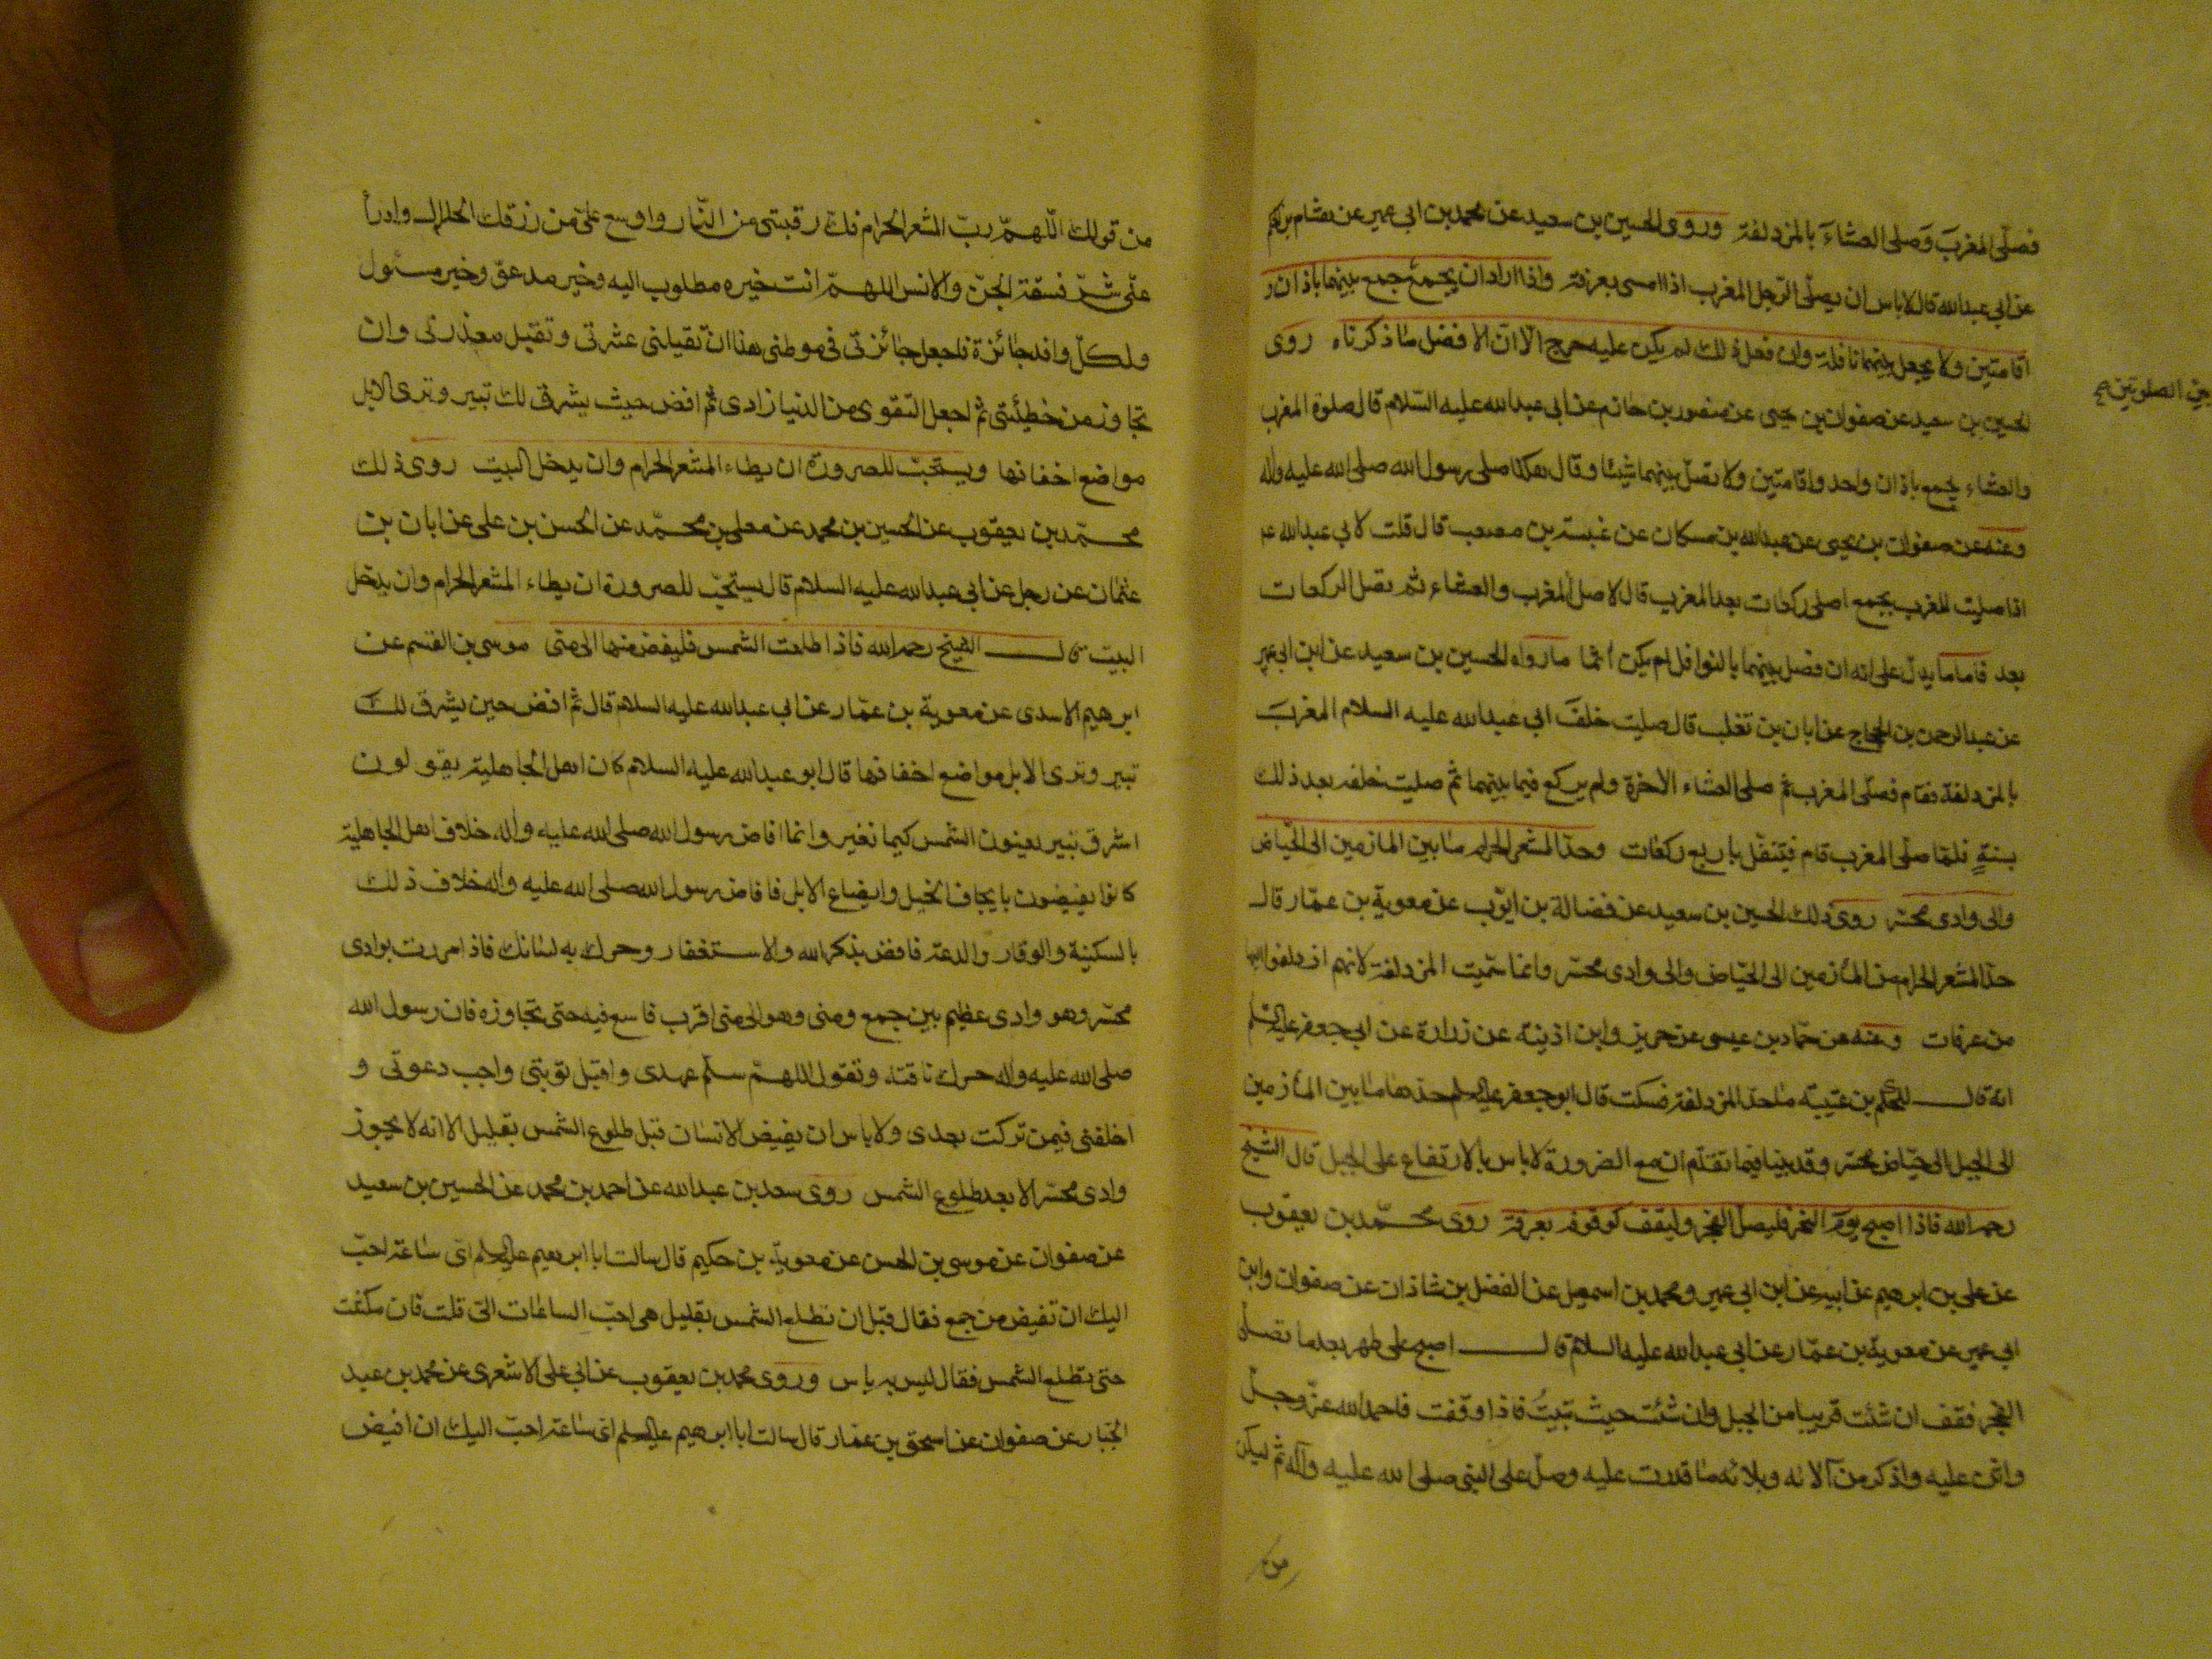 فصلّى المغربَ وَصلى العشاءَ بالمزدلفة وروى الحسين بن سعيد عن محمد بن ابى عمير عن هشام بن الحكم
عن ابى عبد الله قال لا باس ان يصلّى الرّجل المغرب اذا امسى بعرفة واذا اراد ان يجمع جمع بينهما باذان و
اقامتين ولا يجعل بينهما نافلة وان فعل ذلك لم يكن عليه حرج الّا انّ الافضل ما ذكرناه روى
بين الصلوتين صح
الحسين بن سعيد عن صفوان بن يحيى عن منصور بن حازم عن ابى عبد الله عليه السّلام قال صلوة المغرب
والعشاء بجمع باذان واحد واقامتين ولا تصلّ بينهما شيئا وقال هكذا صلى رسول الله صلى الله عليه واله
وعنه عن صفوان بن يحيى عن عبد الله بن مسكان عن عنبسة بن مصعب قال قلت لابى عبد الله ع
اذا صليت المغرب بجمع اصلى ركعات بعد المغرب قال لا صل المغرب والعشاء ثم تصل الركعات
بعد فاما ما يدل على انه ان فصل بينهما بالنوافل لم يكن اثما ما رواه الحسين بن سعيد عن ابن ابى عمير
عن عبد الرحمن بن الحجاج عن ابان بن تغلب قال صليت خلفَ ابى عبد الله عليه السلام المغربَ
بالمزدلفة فقام فصلّى المغرب ثم صلى العشاء الاخرة ولم يركع فيما بينهما ثم صليت خلفه بعد ذلك
بسنةٍ فلمّا صلّى المغرب قام فتنفّل باربع ركعات وحدّ المشعر الحرام ما بين المازمين الى الحياض
والى وادى محسّر روى ذلك الحسين بن سعيد عن فضالة بن ايّوب عن معوية بن عمّار قال
حدّ المشعر الحرام من المأزمين الى الحياض والى وادى محسّر وانما سمّيت المزدلفة لانهم ازدلفوا اليها
من عرفات وعنه عن حماد بن عيسى عن حريز وابن اذينة عن زرارة عن ابى جعفر عليه السلم
انه قال للحكم بن عتيبة ما حدّ المزدلفة فسكت قال ابو جعفر عليه السلم حدّها ما بين المأزمين
الى الجبل الى حياض محسّر وقد بينا فيما تقدّم ان مع الضرورة لا باس بالارتفاع على الجبل قال الشيخ
رحمه الله فاذا اصبح يوم النحر فليصلّ الفجر وليقف كوقوفه بعرفة روى محمّد بن يعقوب
عن على بن ابرهيم عن ابيه عن ابن ابى عمير ومحمد بن اسمعيل عن الفضل بن شاذان عن صفوان وابن
ابى عمير عن معوية بن عمّار عن ابى عبد الله عليه السلام قال اصبح على طهر بعد ما تصلى
الفجر فقف ان شئت قريبا من الجبل وان شئت حيث تبيتُ فاذا وقفت فاحمد الله عزّ وجلّ
واثن عليه واذكر من آلائه وبلائه ما قدرت عليه وصلّ على النبى صلى الله عليه وآله ثم ليكن
من
من قولك اللّهمّ ربّ المشعر الحرام فك رقبتى من النّار واوسع علىّ من رزقك الحلال وادرأ
عنّى شرّ فسقة الجنّ والانس اللهمّ انت خير مطلوب اليه وخير مدعوّ وخير مسئول
ولكلّ وافد جائزة فاجعل جائزتى فى موطنى هذا ان تقيلنى عثرتى وتقبل معذرتى وان
تجاوز من خطيئتى ثم اجعل التقوى من الدنيا زادى ثم افض حيث يشرق لك ثبير وترى الابل
مواضع اخفافها ويستحبّ للصرورة ان يطاء المشعر الحرام وان يدخل البيت روى ذلك
محمّد بن يعقوب عن الحسين بن محمد عن معلى بن محمّد عن الحسن بن على عن ابان بن
عثمان عن رجل عن ابى عبد الله عليه السلام قال يستحبّ للصرورة ان يطاء المشعر الحرام وان يدخل
البيت قال الشيخ رحمه الله فاذا طلعت الشمس فليفض منها الى منى موسى بن القسم عن
ابرهيم الاسدى عن معوية بن عمّار عن ابى عبد الله عليه السلام قال ثم افض حين يشرق لك
ثبير وترى الابل مواضع اخفافها قال ابو عبد الله عليه السلام كان اهل الجاهلية يقولون
اشرق ثبير يعنون الشمس كيما نغير وانما افاض رسول الله صلى الله عليه واله خلاف اهل الجاهلية
كانوا يفيضون بايجاف الخيل وايضاع الابل فافاض رسول الله صلى الله عليه واله خلاف ذلك
بالسكينة والوقار والدعة فافض بذكر الله والاستغفار وحرك به لسانك فاذا مررت بوادى
محسّر وهو وادى عظيم بين جمع ومنى وهو الى منى اقرب فاسع فيه حتى تجاوزه فان رسول الله
صلى الله عليه واله حرك ناقته وتقول اللهمّ سلّم عهدى واقبل توبتى واجب دعوتى و
اخلفنى فيمن تركت بعدى ولا باس ان يفيض الانسان قبل طلوع الشمس بقليل الا انه لا يجوز
وادى محسّر الا بعد طلوع الشمس روى سعد بن عبد الله عن احمد بن محمد عن الحسين بن سعيد
عن صفوان عن موسى بن الحسن عن معوية بن حكيم قال سالت ابا ابرهيم عليه السلم اىّ ساعة احبّ
اليك ان تفيض من جمع فقال قبل ان تطلع الشمس بقليل هى احبّ الساعات الىّ قلت فان مكثت
حتى تطلع الشمس فقال ليس به باس وروى محمد بن يعقوب عن ابى على الاشعرى عن محمد بن عبد
الجبّار عن صفوان عن اسحق بن عمار قال سالت ابا ابرهيم عليه السلم اى ساعة احبّ اليك ان افيض